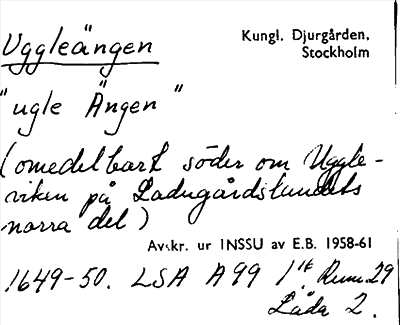 Uggleängen
Kungl. Djurgården,
Stockholm
"ugle Ängen"
(omedelbart söder om Uggle-
viken på Ladugårdslandets
norra del)
Avskr. ur INSSU av E.B. 1958-61
1649-50. LSA A99 1:16 Rum 29
Låda 2.